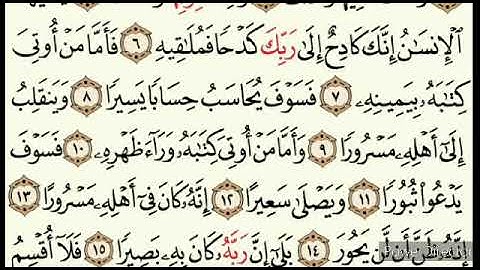 ٱلۡإِنسَٰنُ إِنَّكَ كَادِحٌ إِلَىٰ رَبِّكَ كَدۡحٗا فَمُلَٰقِيهِ ٦ فَأَمَّا مَنۡ أُوتِيَ
كِتَٰبَهُۥ بِيَمِينِهِۦ ٧ فَسَوۡفَ يُحَاسَبُ حِسَابٗا يَسِيرٗا ٨ وَيَنقَلِبُ
إِلَىٰٓ أَهۡلِهِۦ مَسۡرُورٗا ٩ وَأَمَّا مَنۡ أُوتِيَ كِتَٰبَهُۥ وَرَآءَ ظَهۡرِهِۦ ١٠ فَسَوۡفَ
يَدۡعُواْ ثُبُورٗا ١١ وَيَصۡلَىٰ سَعِيرًا ١٢ إِنَّهُۥ كَانَ فِيٓ أَهۡلِهِۦ مَسۡرُورًا ١٣
إِنَّهُۥ ظَنَّ أَن لَّن يَحُورَ ١٤ بَلَىٰٓۚ إِنَّ رَبَّهُۥ كَانَ بِهِۦ بَصِيرٗا ١٥ فَلَآ أُقۡسِمُ